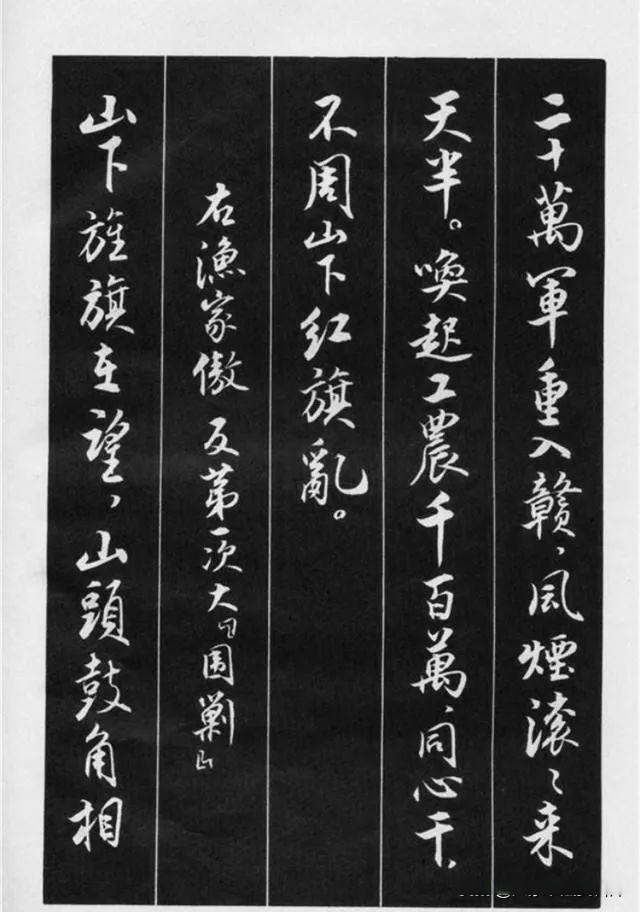 二十萬軍重入贛、風煙滾々来
天半。喚起工農千百萬、同心干、
不周山下红旗亂。
右漁家傲 反第一次大「围剿」
山下旌旗在望，山頭鼓角相